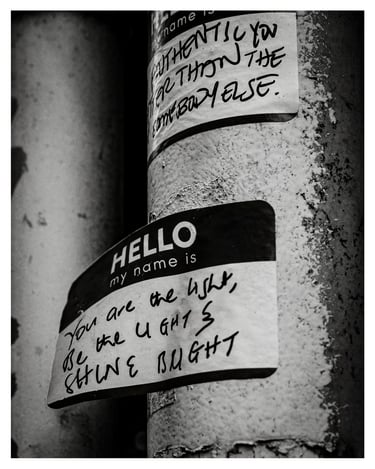 my name is
AUTHENTIC YOU
ER THAN THE
SOMEBODY ELSE.
HELLO
my name is
You are the light,
Be the LIGHT &
SHINE BRIGHT